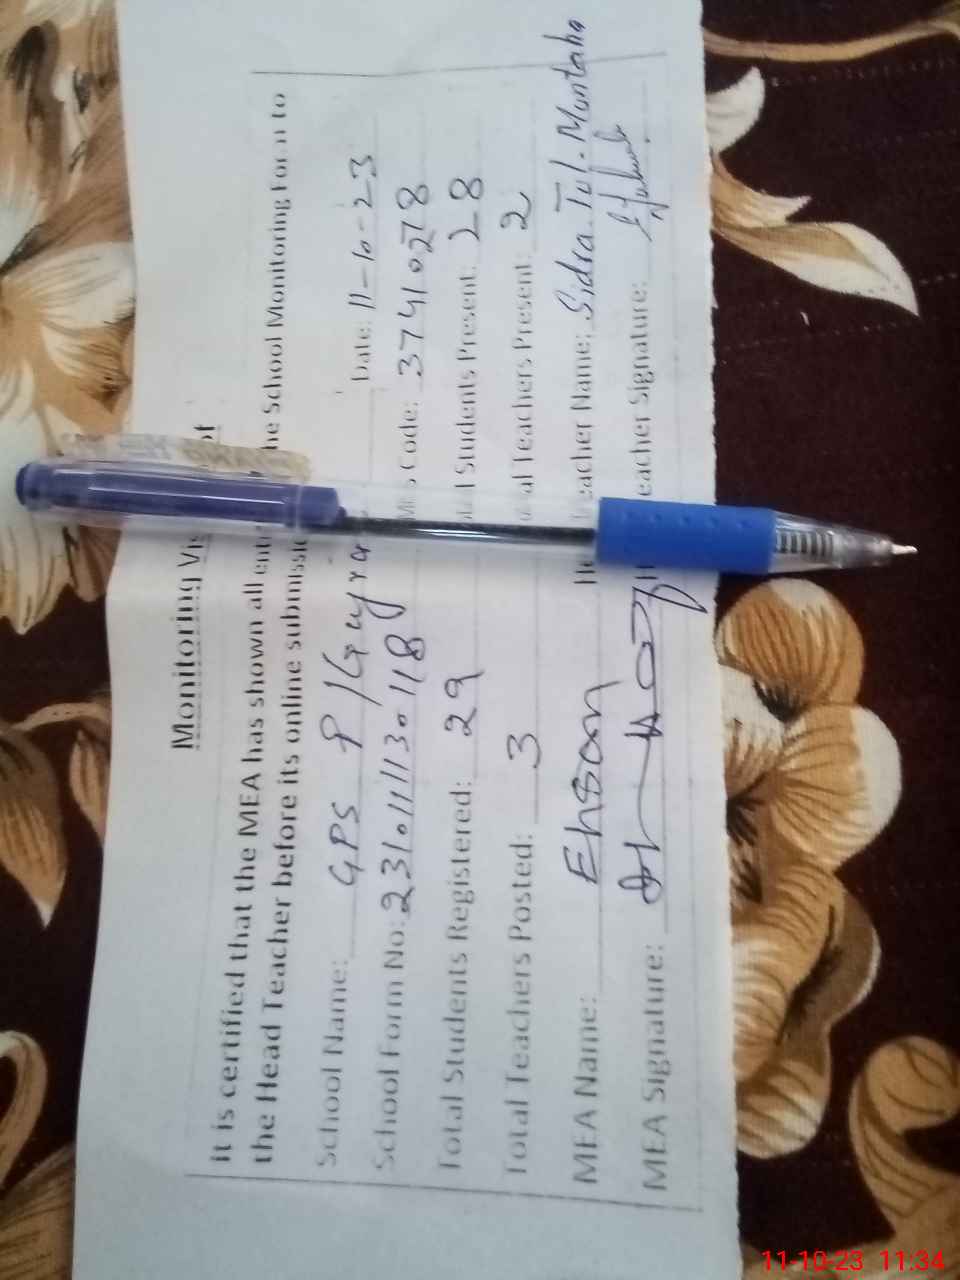 Monitoring Vis
It is certified that the MEA has shown all ent he School Monitoring Form to
the Head Teacher before its online submissi
School Name: GPS P/Gujra Date: 11-10-23
School Form No: 2310111130118 Code: 37410278
Total Students Registered: 29 Students Present: 28
Total Teachers Posted: 3 Teachers Present: 2
MEA Name: Ehsan He Teacher Name: Sidra-Tul-Muntaha
MEA Signature: Teacher Signature:
11-10-23 11:34